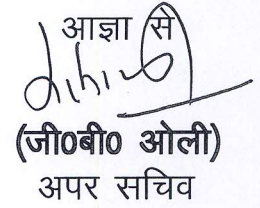 आज्ञा से
(जी0बी0 ओली)
अपर सचिव